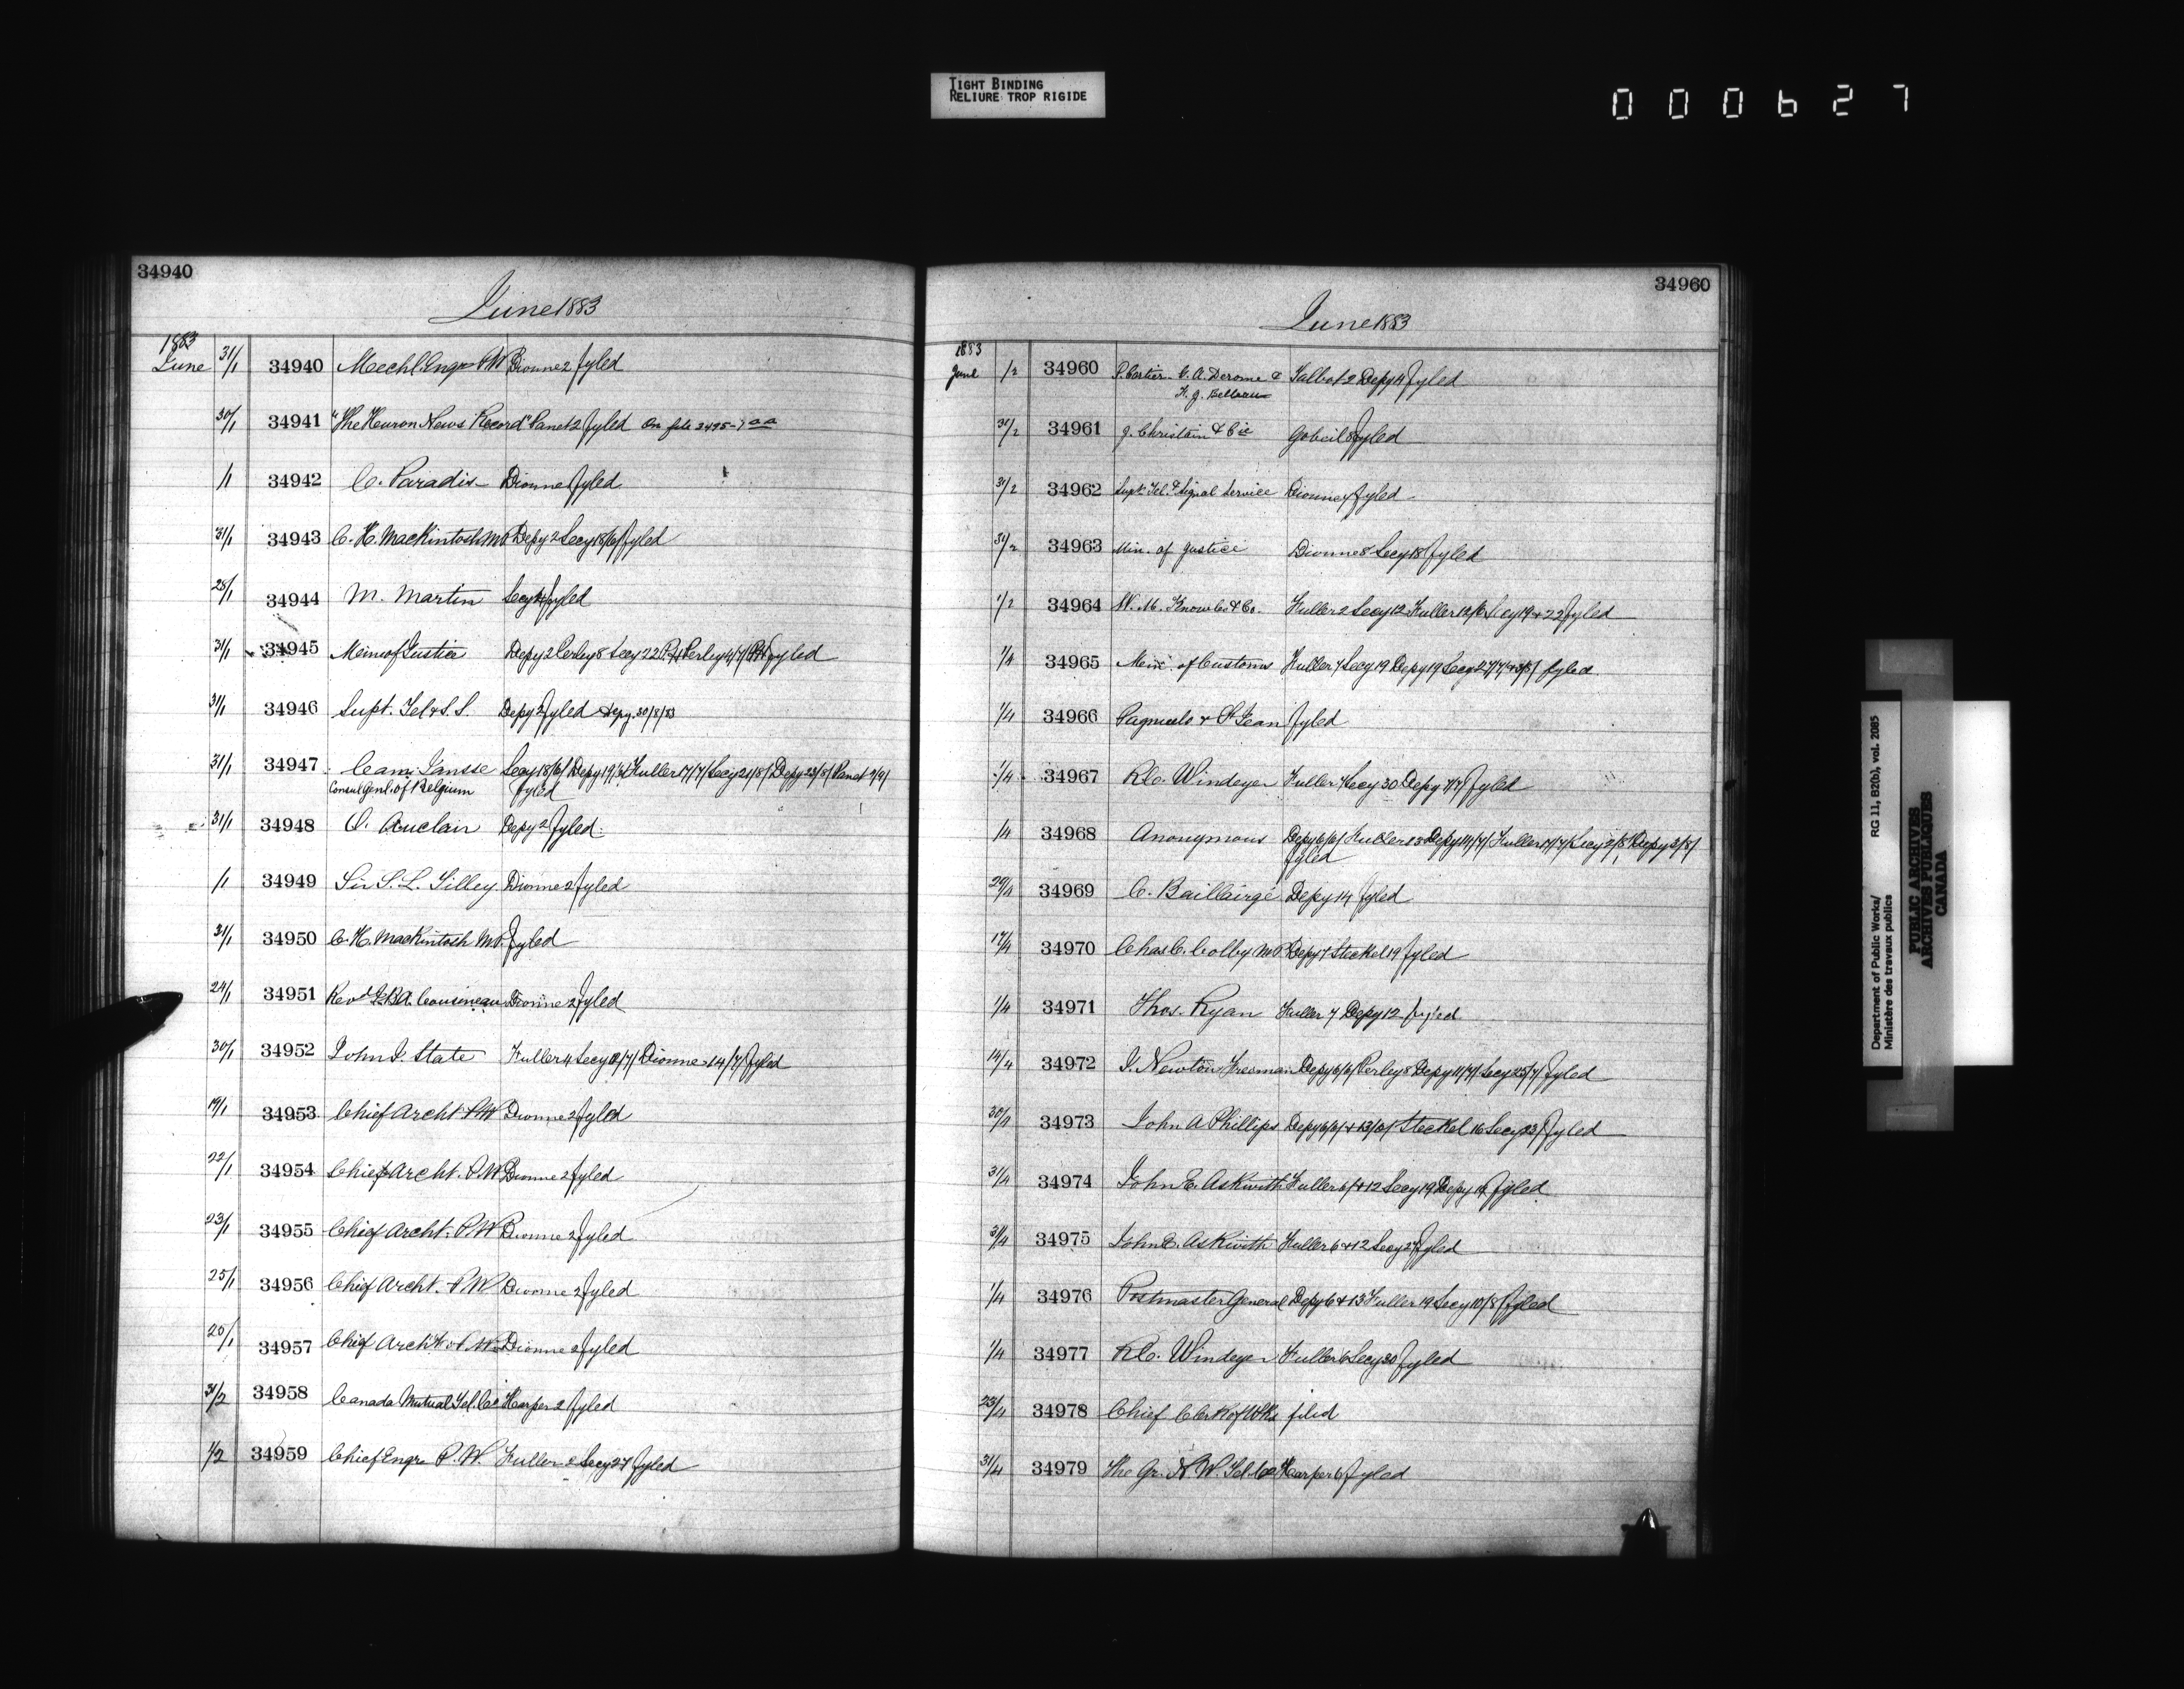 TIGHT BINDING
RELIURE TROP RIGIDE
000627
34940
June 1883
1883
June 31/1 34940 Mechl. Engr P.W Dionne 2 fyled
30/1 34941 "The Huron News Record" Panet 2 fyled On file 2495-7
/1 34942 C. Paradis Dionne fyled
31/1 34943 C. H. Mackintosh M.P. Depy 2 Secy 18/6/ fyled
28/1 34944 M. Martin Secy fyled
31/1 34945 Min of Justice Depy 2 Perley 8 Secy 22 Perley 4/7/ fyled
31/1 34946 Supt. Tel & S.S. Depy 2 fyled Depy. 30/8/83
31/1 34947 Cam. Jansse Secy 18/6/ Depy 19/6/ Fuller 17/7/ Secy 21/8/ Depy 23/8/ Panet 7/9/
Consul Genl. of Belgium fyled
31/1 34948 O. Auclair Depy 2 fyled
/1 34949 Sir S. L. Tilley Dionne 2 fyled
31/1 34950 C. H. Mackintosh M.P. fyled
24/1 34951 Revd. Cousineau Dionne 2 fyled
30/1 34952 John J. State Fuller 4 Secy 12/7/ Dionne 14/7/ fyled
19/1 34953 Chief Archt P.W Dionne 2 fyled
22/1 34954 Chief Archt. P.W. Dionne 2 fyled
23/1 34955 Chief Archt. P.W Dionne 2 fyled
25/1 34956 Chief Archt. P.W Dionne 2 fyled
25/1 34957 Chief Archt. P.W. Dionne 2 fyled
31/2 34958 Canada Mutual Tel. Co Harper 2 fyled
1/2 34959 Chief Engr P.W. Fuller 2 Secy 27 fyled
34960
June 1883
1883
June 1/2 34960 P. Cartier. C. A. Derome & Talbot 2 Depy 14 fyled
F. J. Belleau
31/2 34961 J. Christain & Cie Gobeil 8 fyled
31/2 34962 Supt. Tel. & Signal Service Dionne 4 fyled
31/2 34963 Min. of Justice Dionne 8 Secy 18 fyled
1/2 34964 W. M. Knowles & Co. Fuller 2 Secy 12 Fuller 12/6 Secy 19 & 22 fyled
1/4 34965 Min. of Customs Fuller 7 Secy 19 Depy 19 Secy 27/7/ & 3/8/ fyled
1/4 34966 Pagnuelo & St Jean fyled
1/4 34967 R.C. Windeyer Fuller 7 Secy 30 Depy 7/7/ fyled
/4 34968 Anonymous Depy 6/6/ Fuller 13 Depy 14/7/ Fuller 17/7/ Secy 2/8/ Depy 2/8/
fyled
29/4 34969 C. Baillairgé Depy 14 fyled
17/4 34970 Chas C. Colby M.P. Depy 7 Steckel 19 fyled
1/4 34971 Thos. Ryan Fuller 7 Depy 12 fyled
14/4 34972 J. Newton Freeman Depy 6/6/ Perley 8 Depy 11/7/ Secy 25/7/ fyled
30/4 34973 John A Phillips Depy 6/6/ & 13/6/ Steckel 16 Secy 23/ fyled
31/4 34974 John E. Askwith Fuller 6/ & 12 Secy 19 Depy 19 fyled
31/4 34975 John E. Askwith Fuller 6 & 12 Secy 27 fyled
1/4 34976 Postmaster General Depy 6 & 13 Fuller 19 Secy 10/8/ fyled
1/4 34977 R.C. Windeyer Fuller 6 Secy 30 fyled
23/4 34978 Chief Clerk of Wks filed
31/4 34979 The Gr. N. W. Tel. Co Harper 6 fyled
Department of Public Works/ RG 11, B2(b), vol. 2085
Ministère des travaux publics
PUBLIC ARCHIVES
ARCHIVES PUBLIQUES
CANADA